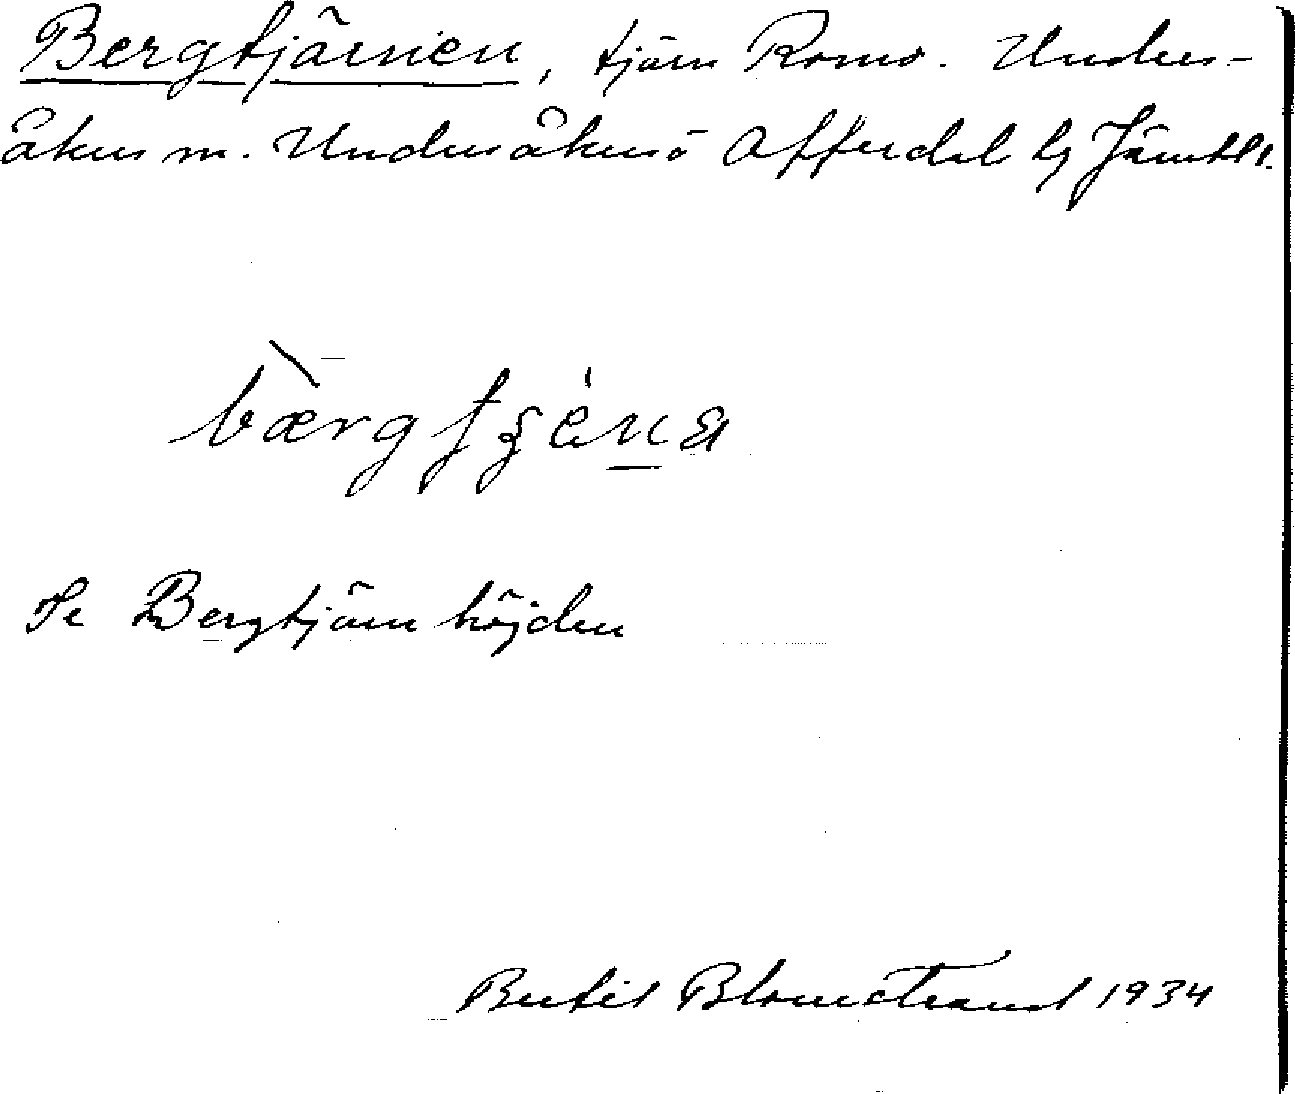 Bergtjärnen, tjärn Romo. Unders-
åkers m. Undersåkers o Offerdal tg Jämtl l.
bærgtʂèn̲a
Se Bergtjärnhöjden
Bertil Blomstrand 1934